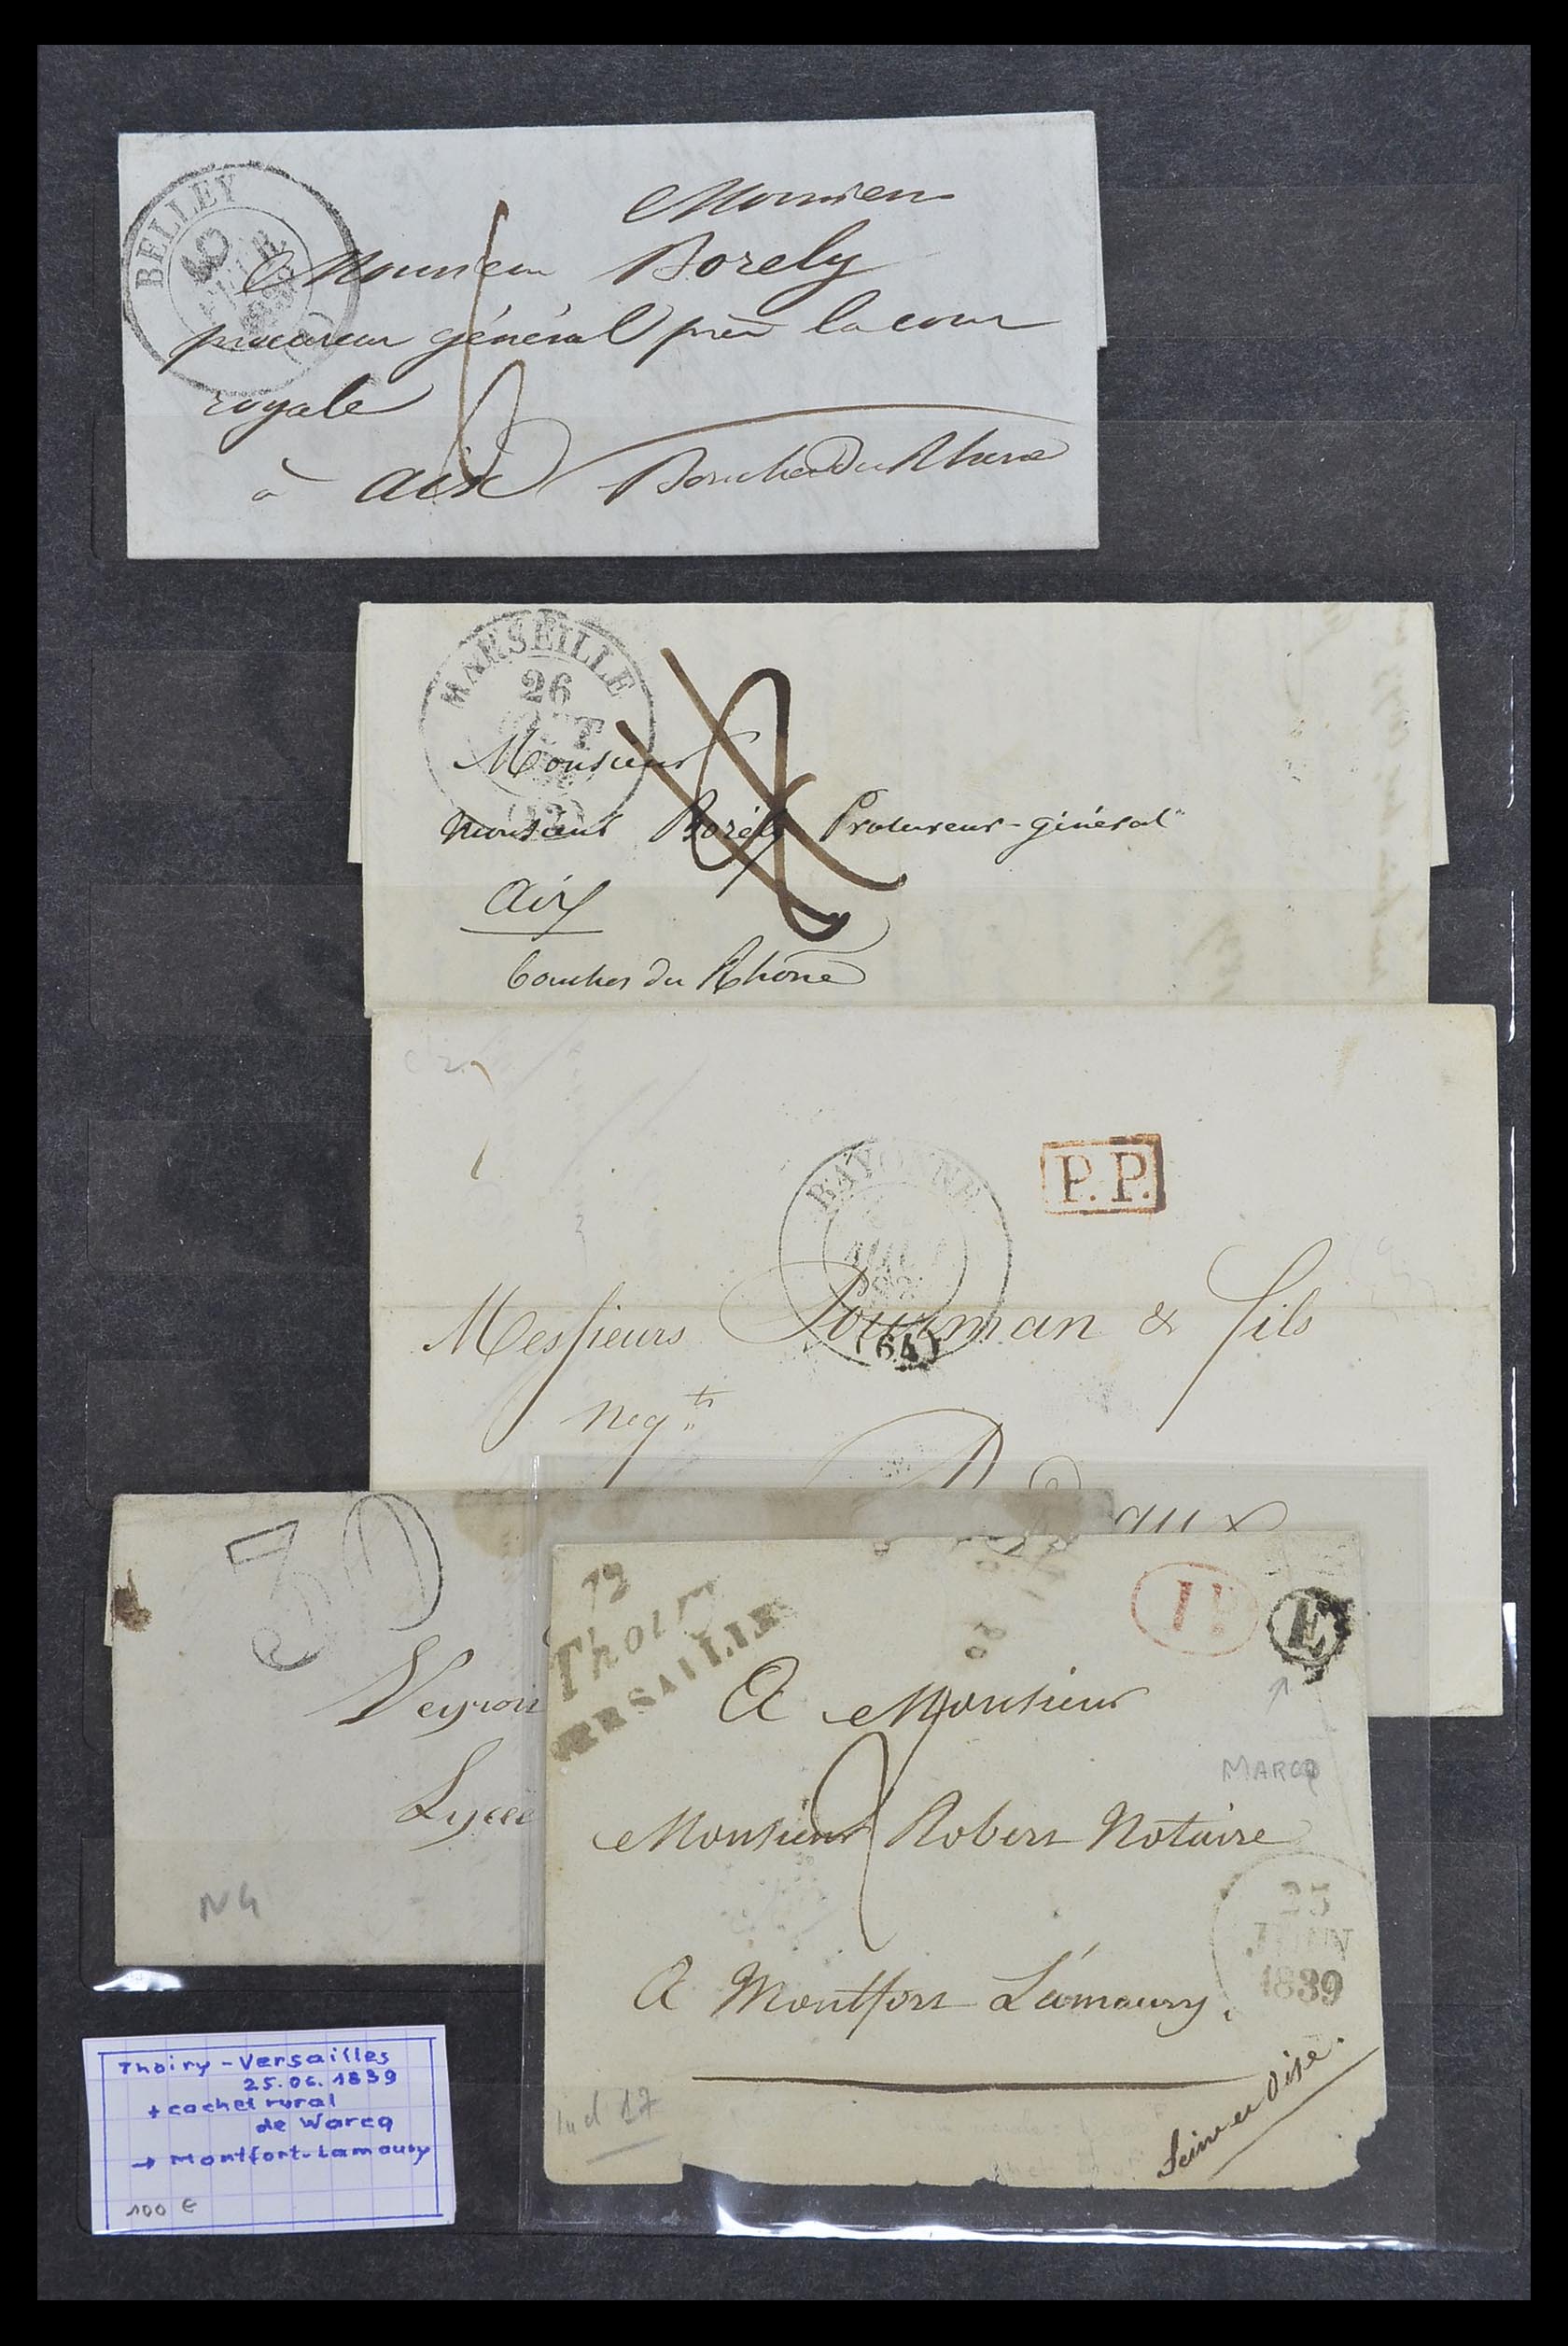 BELLEY
Monsieur
Monsieur Borely
procureur général près la cour
royale
à aix Bouches Du Rhone
MARSEILLE
26
Monsieur
Monsieur Borély Procureur-général
Aix
bouches du Rhône
BAYONNE
P.P.
(64)
Messieurs & fils
Neg.ts
30
Lycée
N4
72
Thoiry
VERSAILLES
E
A Monsieur
MARCQ
Monsieur Robert Notaire
25
JUIN
1839
A Montfort L'amaury.
Seine et Oise.
Ind 17
Thoiry - Versailles
25.06.1839
+ cachet rural
de Warcq
→ Montfort-Lamaury
100 €